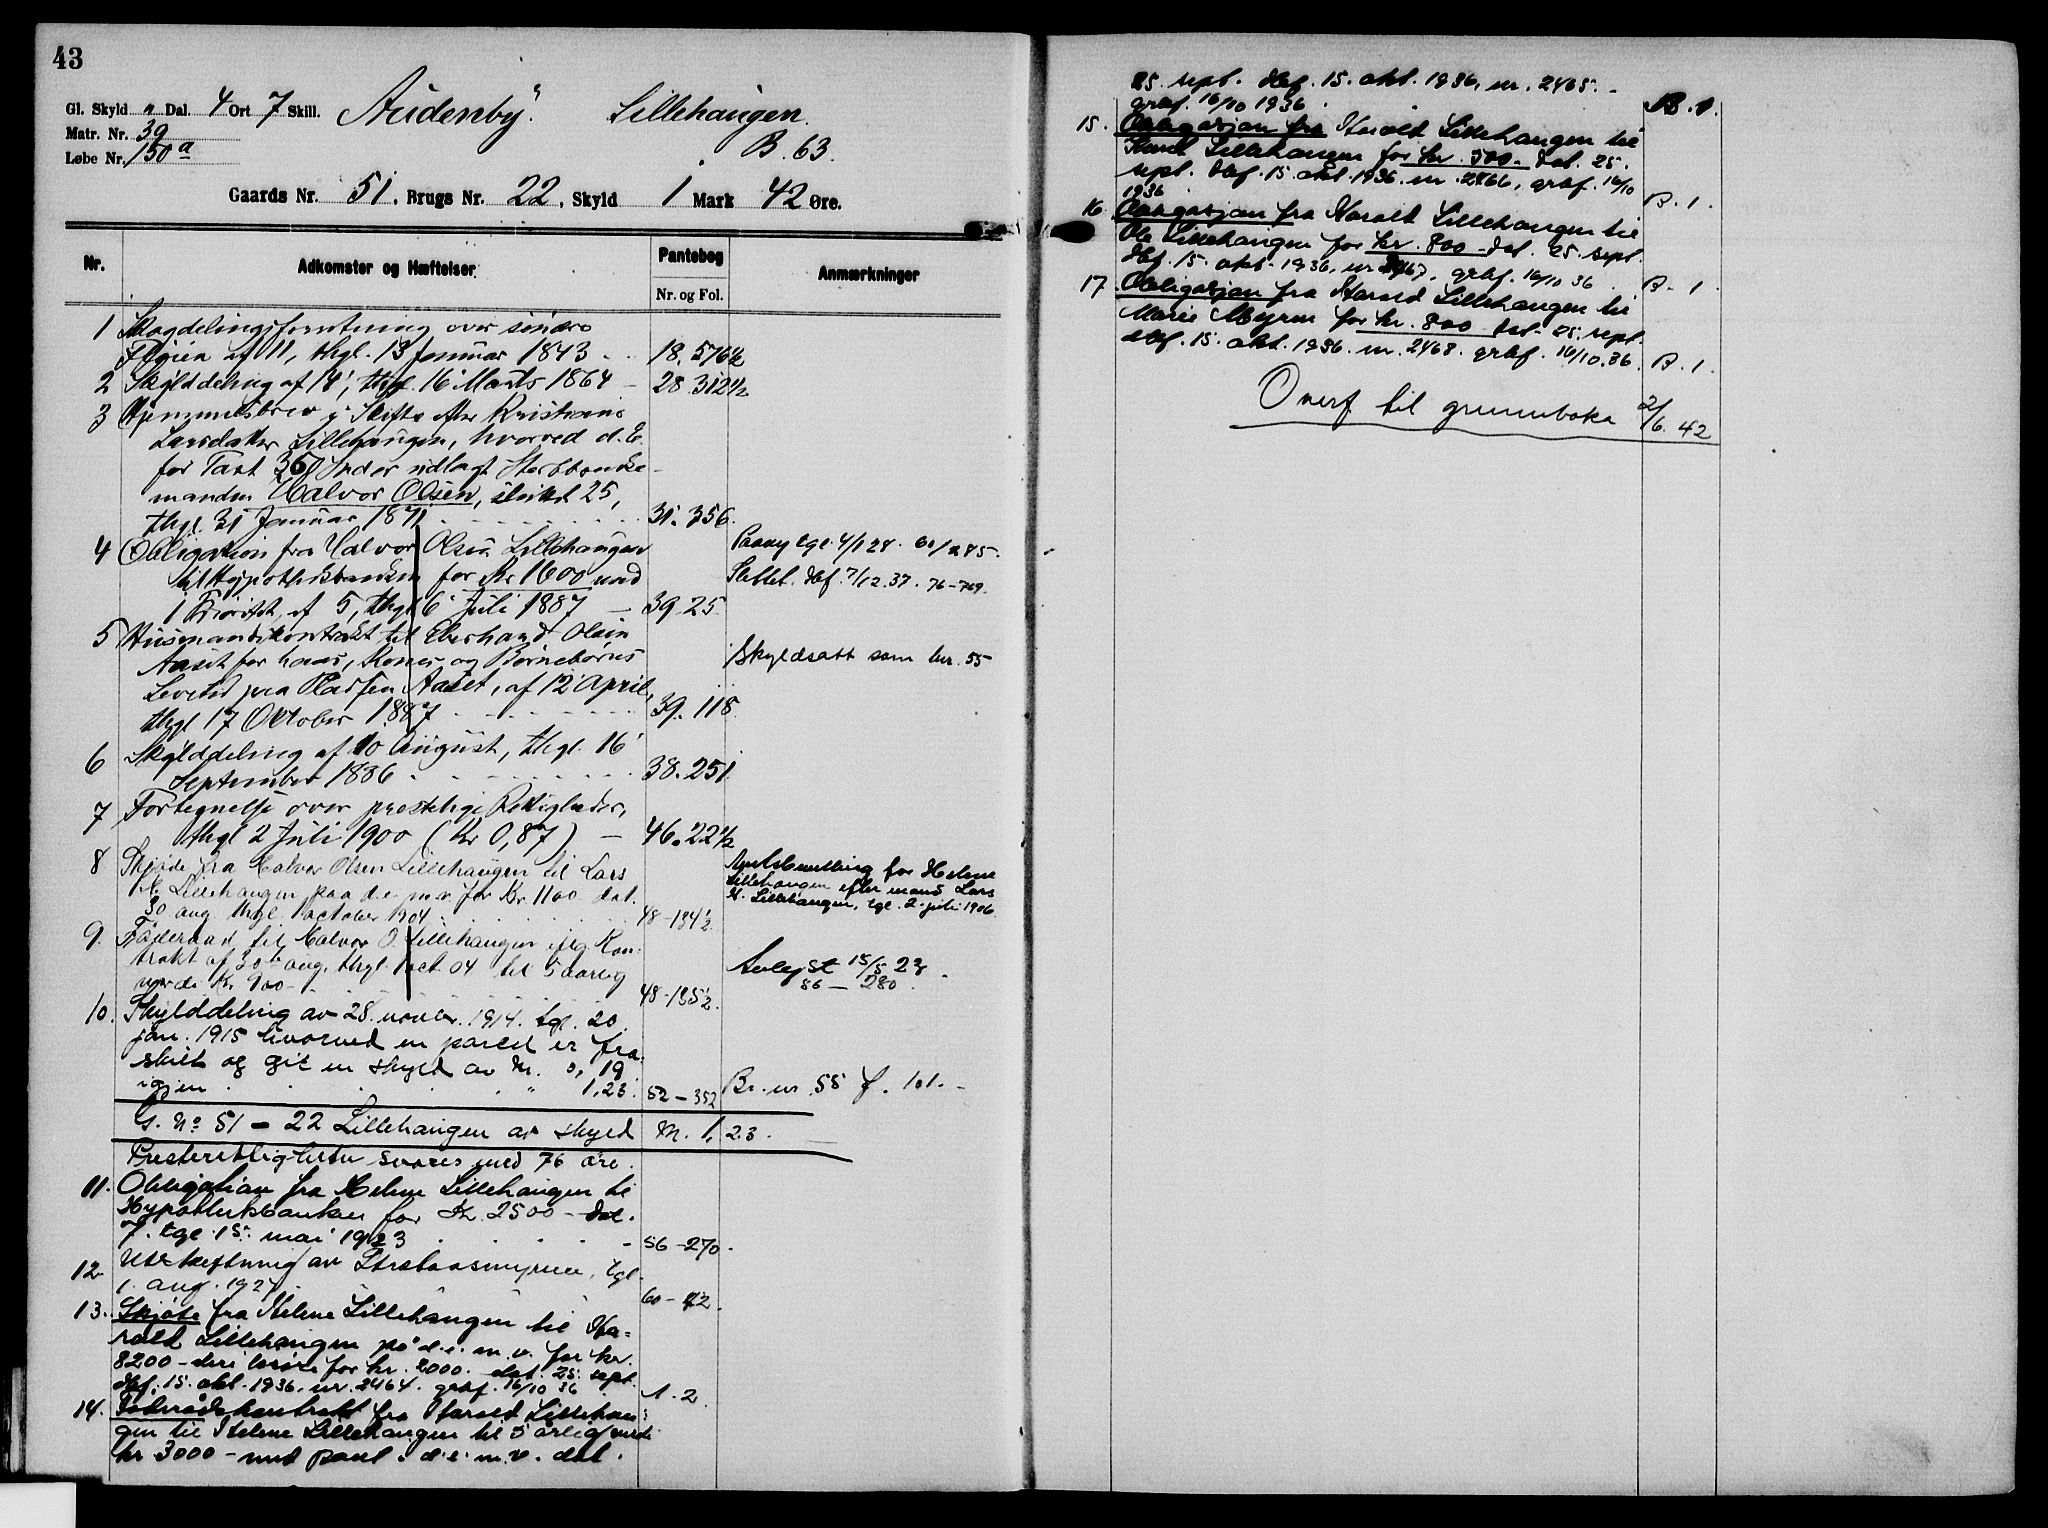 43
Gl. Skyld " Dal. 4 Ort 7 Skill. Audenby" Lillehaugen.
Matr. Nr. 39
Løbe Nr. 150 a B. 63.
Gaards Nr. 51, Brugs Nr. 22, Skyld 1 Mark 42 Øre.
Nr. Adkomster og Hæftelser Pantebog Anmærkninger
Nr. og Fol.
1 Skogdelingsforretning over søndre
af 11, thgl. 13 Januar 1843 - 18. 576½
2 Skylddeling af 14, thgl. 16 Marts 1864 - 28 312½
3 Hjemmelsbrev i Skifte efter Kristiane
Larsdatter Lillehaugen, hvorved d. E.
for Taxt 360 Spdlr er udlagt Sterbboenke
manden Halvor Olsen, sluttet 25,
thgl. 31 Januar 1871 31. 356.
4 Obligation fra Halvor Olsen Lillehaugen Paany tgl. 4/1 28. 60/245.
til Hypothekbanken for Kr 1600 mod Slettet. dbf. 7/12.37. 76-769.
1 Prioritet, af 5, thgl 6 Juli 1887 - 39. 25.
5 Husmandskontrakt til Eberhard Olsen
Aaset for hans, Kones og Børnebørns Skyldsatt som bnr. 55
Levetid paa Pladsen Aaset, af 12 April,
thgl 17 Oktober 1887 39. 118.
6 Skylddeling af 10 August, thgl. 16
September 1886 38. 251.
7 Fortegnelse over prestelige Rettigheder,
thgl 2 Juli 1900 (Kr 0,87) - 46. 22½
8 Skjøde fra Halvor Olsen Lillehaugen til Lars Uskiftebevilling for Helene
H. Lillehaugen paa d.e. m.v. for Kr. 1100 dat. Lillehaugen efter mand Lars
30 aug. thgl. 1 october 1904 48-134½ H. Lillehaugen, tgl. 2. juli 1906.
9. Føderaad til Halvor O. Lillehaugen iflg. Kon-
trakt af 30te aug. thgl. 1 oct. 04 til 5 aarlig Avlyst 15/5 23
værdi Kr. 900 - 48-135½. 56 - 280.
10. Skylddeling av 28. novbr. 1914. tgl. 20
jan. 1915 hvorved en parcel er fra-
skilt og git en skyld av M. 0,19
igjen " 1,23. 52-352 Br. nr. 55 f. 101. -
G. No 51 - 22 Lillehaugen av skyld M. 1,23.
Presterettigheter svares med 76 øre.
11. Obligation fra Helene Lillehaugen til
Hypotekbanken for Kr. 2500 - dat.
7. tgl. 15. mai 1923 56-270.
12. Utskiftning av tgl.
1. aug. 1927. 60-42.
13. Skjøte fra Helene Lillehaugen til Ha-
rald Lillehaugen på d.e. m.v. for kr.
8200 - deri løsøre for kr. 2000. dat. 25. sept.
dbf. 15. okt. 1936, nr. 2464. grbf. 16/10 36 A. 2.
14. Føderådskontrakt fra Harald Lillehau-
gen til Helene Lillehaugen til 5 årlig verdi
kr 3000 - med pant i d.e. m.v. dat.
25. sept. dbf. 15. okt. 1936, nr. 2465. -
grbf. 16/10 1936 B. 1.
15. Obligasjon fra Harald Lillehaugen til
Lillehaugen for kr. 500 - dat. 25.
sept. dbf. 15. okt. 1936. nr. 2466, grbf. 16/10
1936 B. 1.
16. Obligasjon fra Harald Lillehaugen til
Ole Lillehaugen for kr. 800 - dat. 25. sept.
dbf. 15. okt. 1936, nr 2467, grbf. 16/10 36 B. 1
17. Obligasjon fra Harald Lillehaugen til
Marie Myren for kr. 800 dat. 25. sept.
dbf. 15. okt. 1936. nr. 2468. grbf. 16/10.36. B. 1.
Overf til grunnboka 2/6. 42